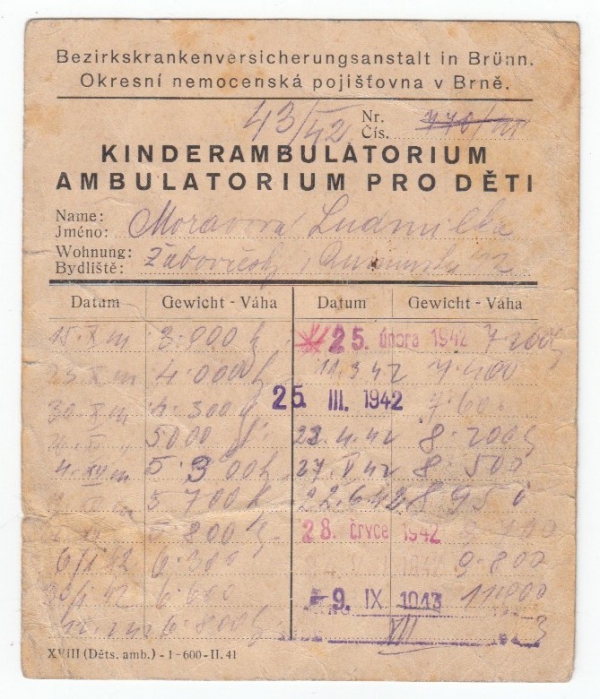 Bezirkskrankenversicherungsanstalt in Brünn.
Okresní nemocenská pojišťovna v Brně.
43/42 Nr.
Čís.
KINDERAMBULATORIUM
AMBULATORIUM PRO DĚTI
Name:
Jméno: Moravová Ludmilka
Wohnung:
Bydliště:
Datum Gewicht - Váha Datum Gewicht - Váha
3.900 25. února 1942 7200
4.000 11.3.42 7.400
4.300 25. III. 1942 7.60
5000 23.4.42 8.200
5.300 27.V.42 8.500
5.700 22.6.42 8.950
5.800 28. červce 1942
6/1 42 6.300 9.800
42 6.600 9. IX 1943 11000
6.800 VII
XVIII (Děts. amb.) - 1 - 600 - II. 41